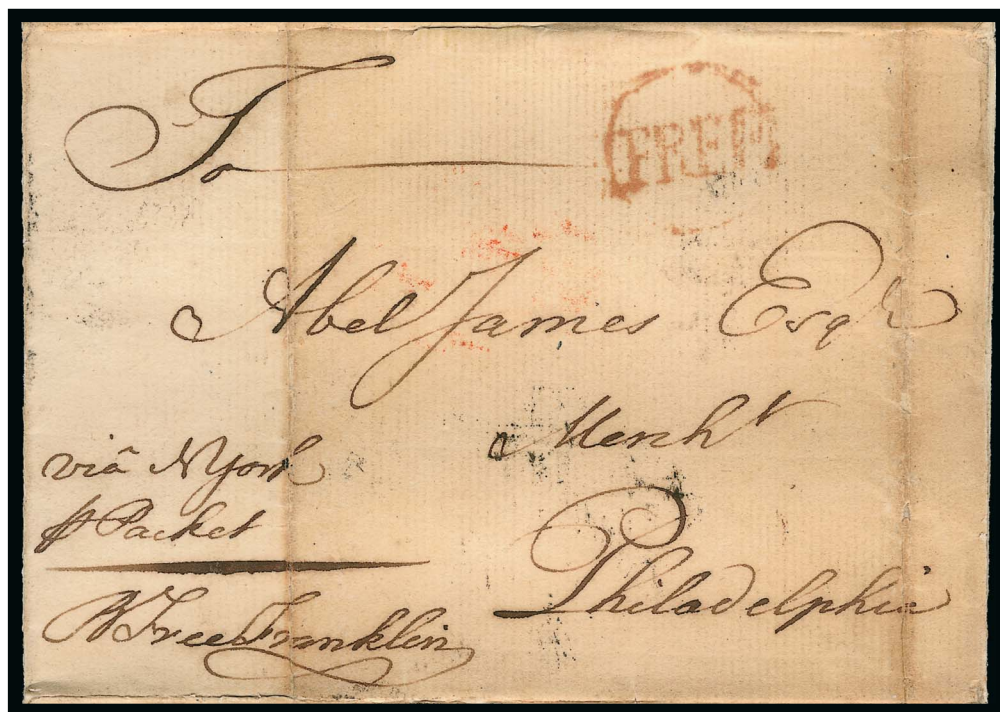 To
FREE
Abel James Esqr
Mercht
Philadelphia
viâ NYork
⅌ Packet
B Free Franklin